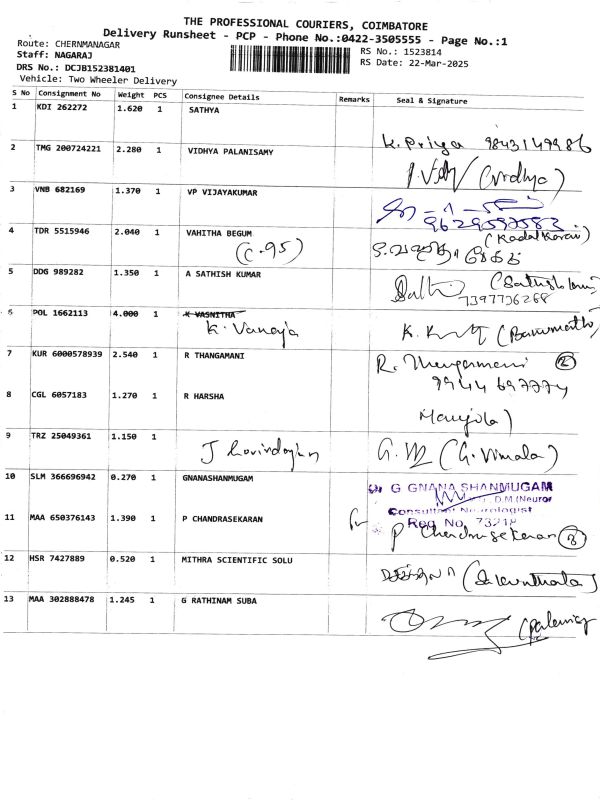 THE PROFESSIONAL COURIERS, COIMBATORE
Delivery Runsheet - PCP - Phone No.:0422-3505555 - Page No.:1
Route: CHERNMANAGAR
Staff: NAGARAJ
DRS No.: DCJB152381401
Vehicle: Two Wheeler Delivery
RS No.: 1523814
RS Date: 22-Mar-2025
S No Consignment No Weight PCS Consignee Details Remarks Seal & Signature
1 KDI 262272 1.620 1 SATHYA
K. Priya 9843149986
2 TMG 200724221 2.280 1 VIDHYA PALANISAMY
(Vidhya)
3 VNB 682169 1.370 1 VP VIJAYKUMAR
9629597583
4 TDR 5515946 2.040 1 VAHITHA BEGUM
(C.95)
5 DDG 989282 1.350 1 A SATHISH KUMAR
7397736268
6 POL 1662113 4.000 1 K VASNITHA
K. Vanaja
7 KUR 6000578939 2.540 1 R THANGAMANI
R. Thangamani 2
9944697774
8 CGL 6057183 1.270 1 R HARSHA
Manjula)
9 TRZ 25049361 1.150 1
(G. Vimala)
10 SLM 366696942 0.270 1 GNANASHANMUGAM
G GNANA SHANMUGAM
D.M(Neuro)
Consultant Neurologist
Reg No. 73219
11 MAA 650376143 1.390 1 P CHANDRASEKARAN
P Chandrasekaran
12 HSR 7427889 0.520 1 MITHRA SCIENTIFIC SOLU
13 MAA 302888478 1.245 1 G RATHINAM SUBA